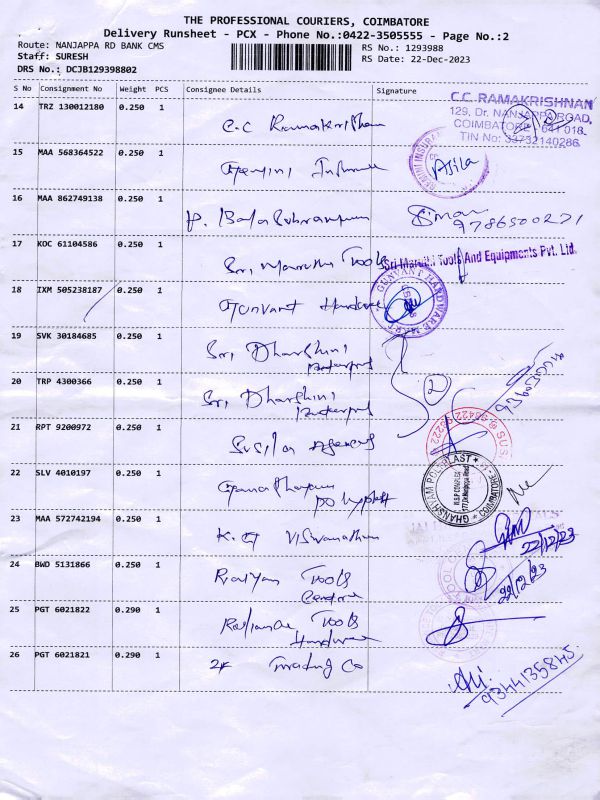 THE PROFESSIONAL COURIERS, COIMBATORE
Delivery Runsheet - PCX - Phone No.:0422-3505555 - Page No.:2
Route: NANJAPPA RD BANK CMS RS No.: 1293988
Staff: SURESH RS Date: 22-Dec-2023
DRS No.: DCJB129398802
S No Consignment No Weight PCS Consignee Details Signature
14 TRZ 130012180 0.250 1 C.C Ramakrishnan
C.C. RAMAKRISHNAN
129, Dr. NANJAPPA ROAD,
COIMBATORE - 641 018.
TIN No: 33732140286
15 MAA 568364522 0.250 1 Gemini Insurance
16 MAA 862749138 0.250 1 P. Balasubramanium
9786500271
17 KOC 61104586 0.250 1 Sri Maruthi Tools
Sri Maruthi Tools And Equipments Pvt. Ltd.
18 IXM 505238187 0.250 1 Gunvant Hardware
GUNVANT HARDWARE MART
19 SVK 30184685 0.250 1 Sri Dharshini
20 TRP 4300366 0.250 1 Sri Dharshini
2
21 RPT 9200972 0.250 1 Susila Agencies
22 SLV 4010197 0.250 1 Polyplast
GHANSHYAM POLYPLAST
COIMBATORE
23 MAA 572742194 0.250 1 K. G Viswanathan
22/12/23
24 BWD 5131866 0.250 1 Tools
Centre
22/12/23
25 PGT 6021822 0.290 1 Reliance Tools
Hardware
26 PGT 6021821 0.290 1 Trading Co
9344135845